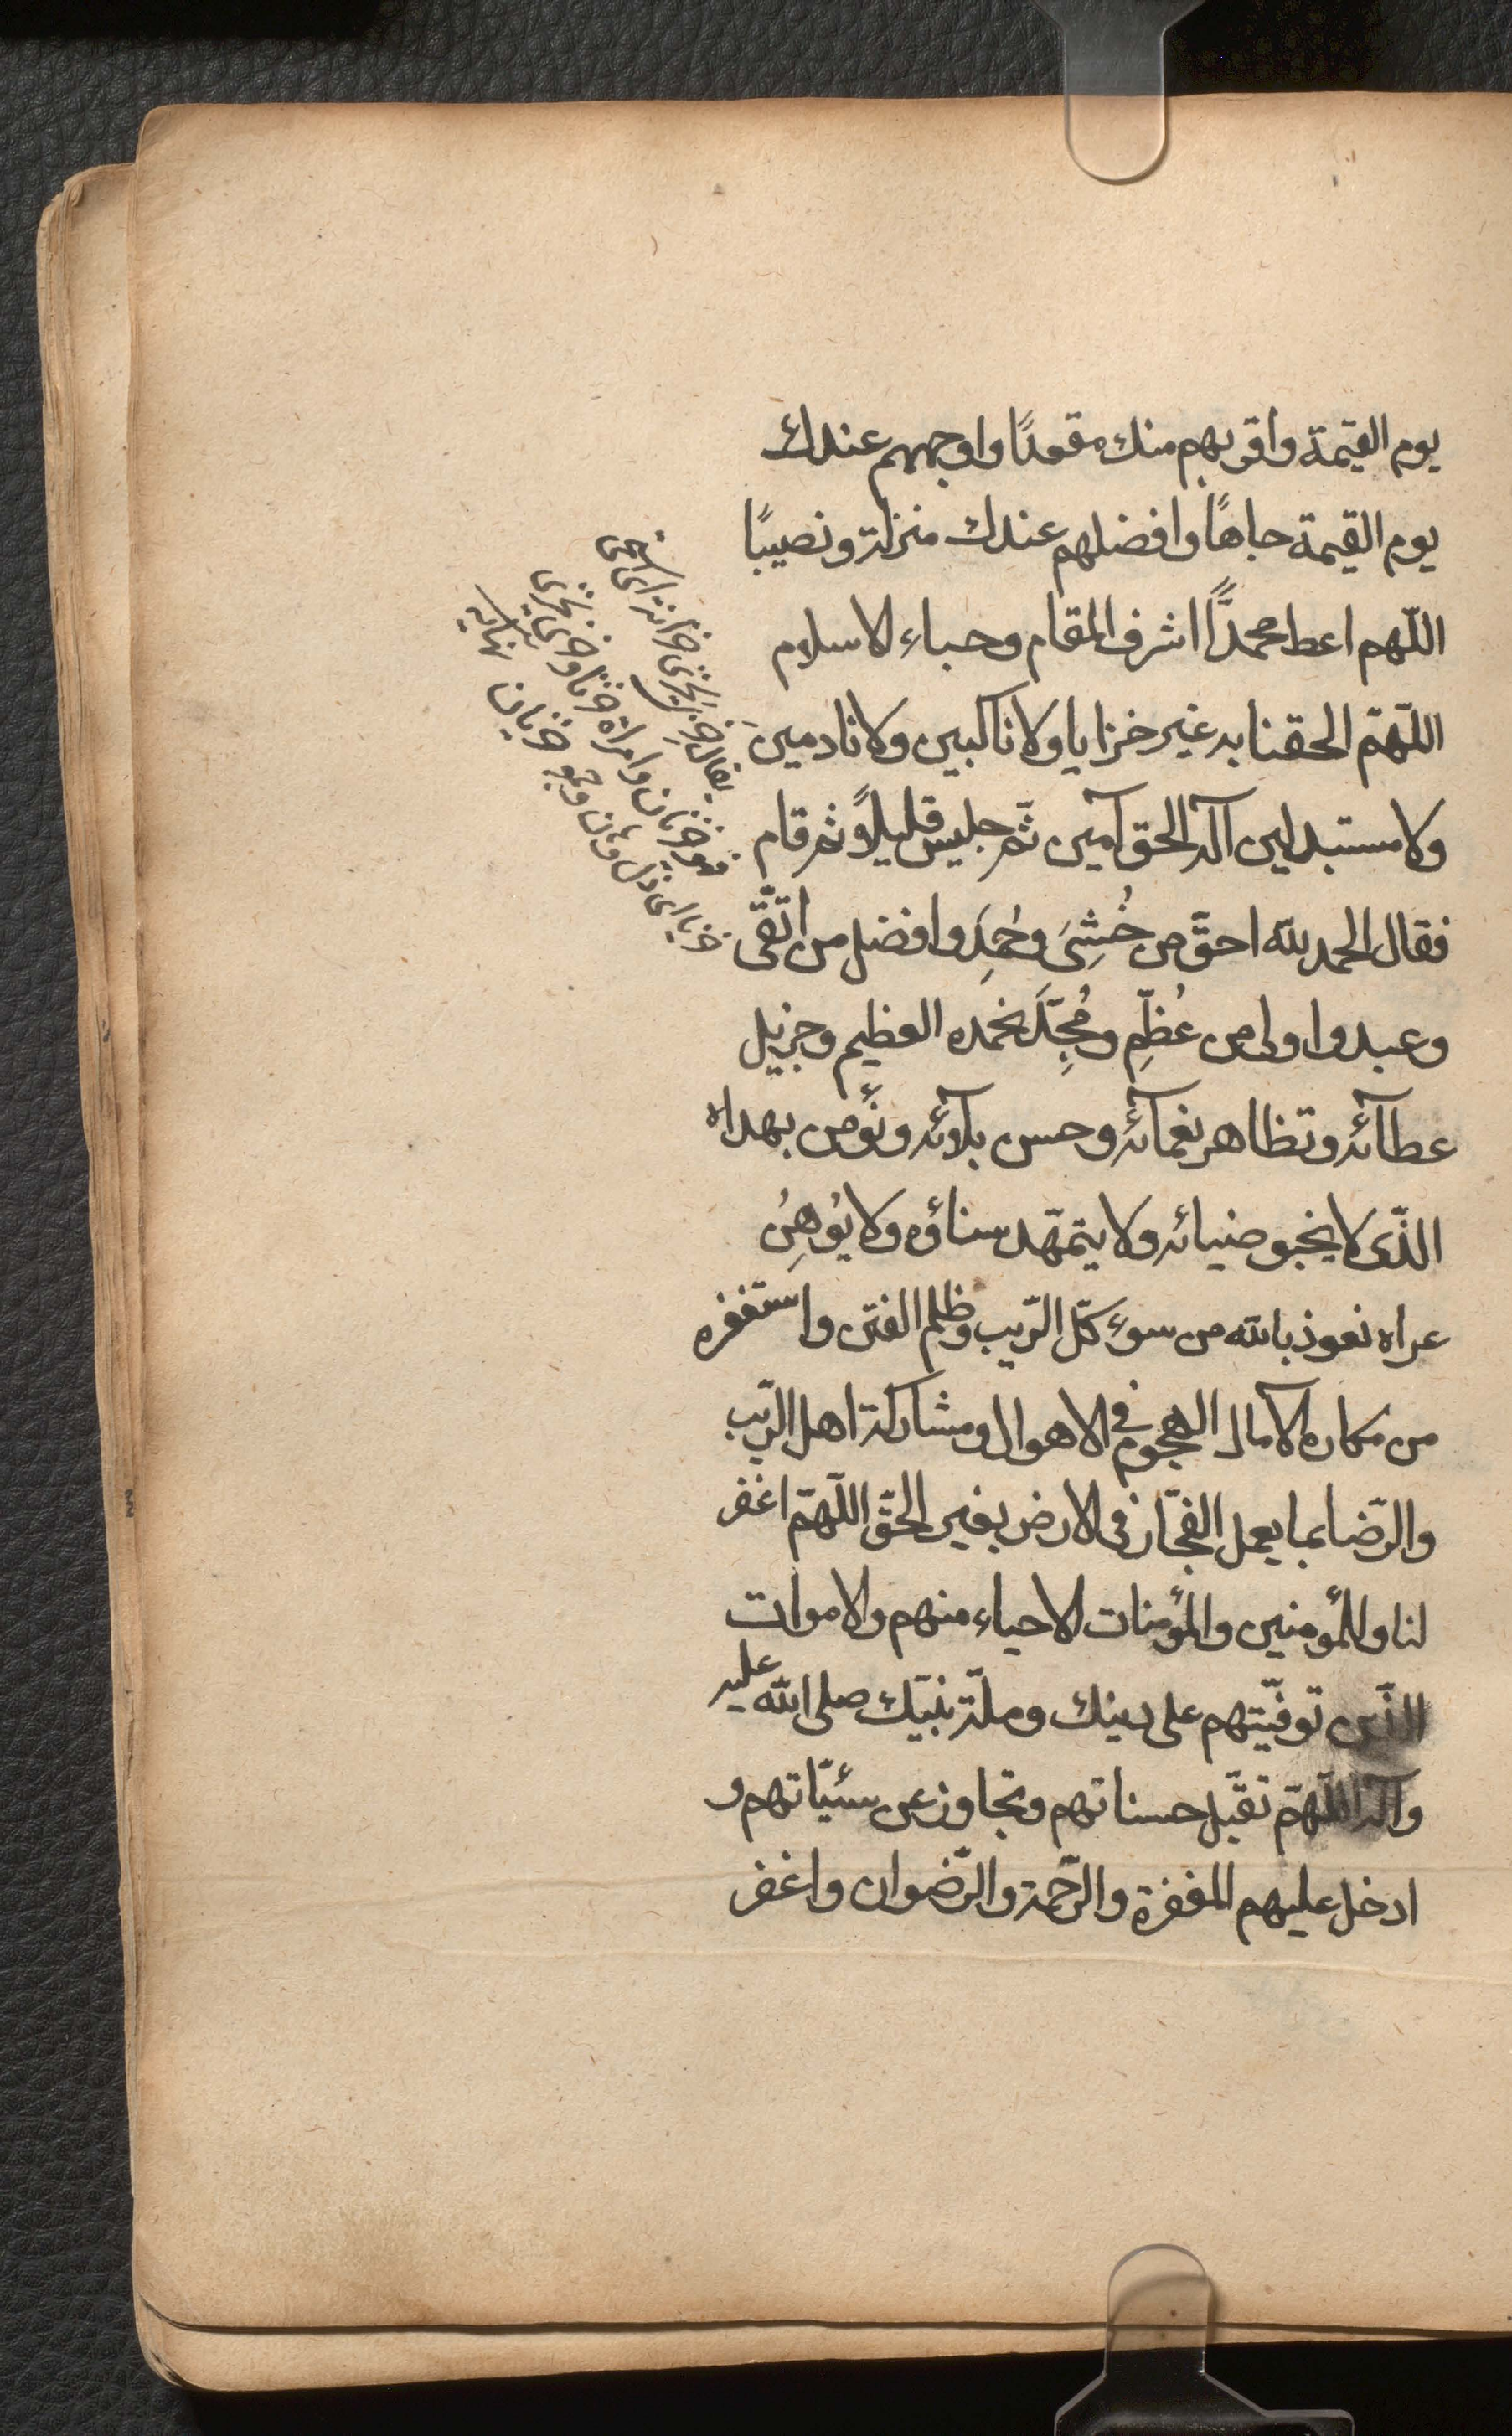 يوم القيمة واقربهم منك مقعدًا واوجههم عندك
يوم القيمة جاهًا وافضلهم عندك منزلة ونصيبًا
اللّهم اعط محمدًّا اشرف المقام وحباء الاسلام
اللّهمّ الحقنا به غير خزايا ولا ناكبين ولا نادمينَ
ولا مستبدلين آله الحق آمين ثمّ جلس قليلاً ثم قام
فقال الحمد لله احقّ من خُشِىَ وحُمِدَ وافضل من اتّقى
وعبد واولى من عُظِّم ومُجِّدَ نحمده العظيم وجزيل
عطآئه وتظاهر نعمآئه وحسن بلآئه ونُؤمن بهداه
الذّى لا يخبو ضيائه ولا يتمهّد سناؤه ولا يُوهنُ
عراه نعوذ بالله من سوء كلّ الرّيب وظلم الفتن واستغفره
من مكاره الآمال الهجوم فى الاهوال ومشاركة اهل الرّيب
والرّضا بما يعمل الفجّار فى الارض بغير الحقّ اللّهمّ اغفر
لنا وللمؤمنين والمؤمنات الاحياء منهم والاموات
الذّين توفّيتهم على دينك وملّة نبيّك صلى الله عليه
وآله اللّهمّ تقبّل حسناتهم وتجاوز عن سيّئاتهم و
ادخل عليهم المغفرة والرّحمة والرّضوان واغفر
يقال خَزِىَ يخزى خزاية اى استحيى
فهو خزيان وامراة خزيا وخزى يخزى
خزيا اى ذل وهان وهو خزيان نهايه